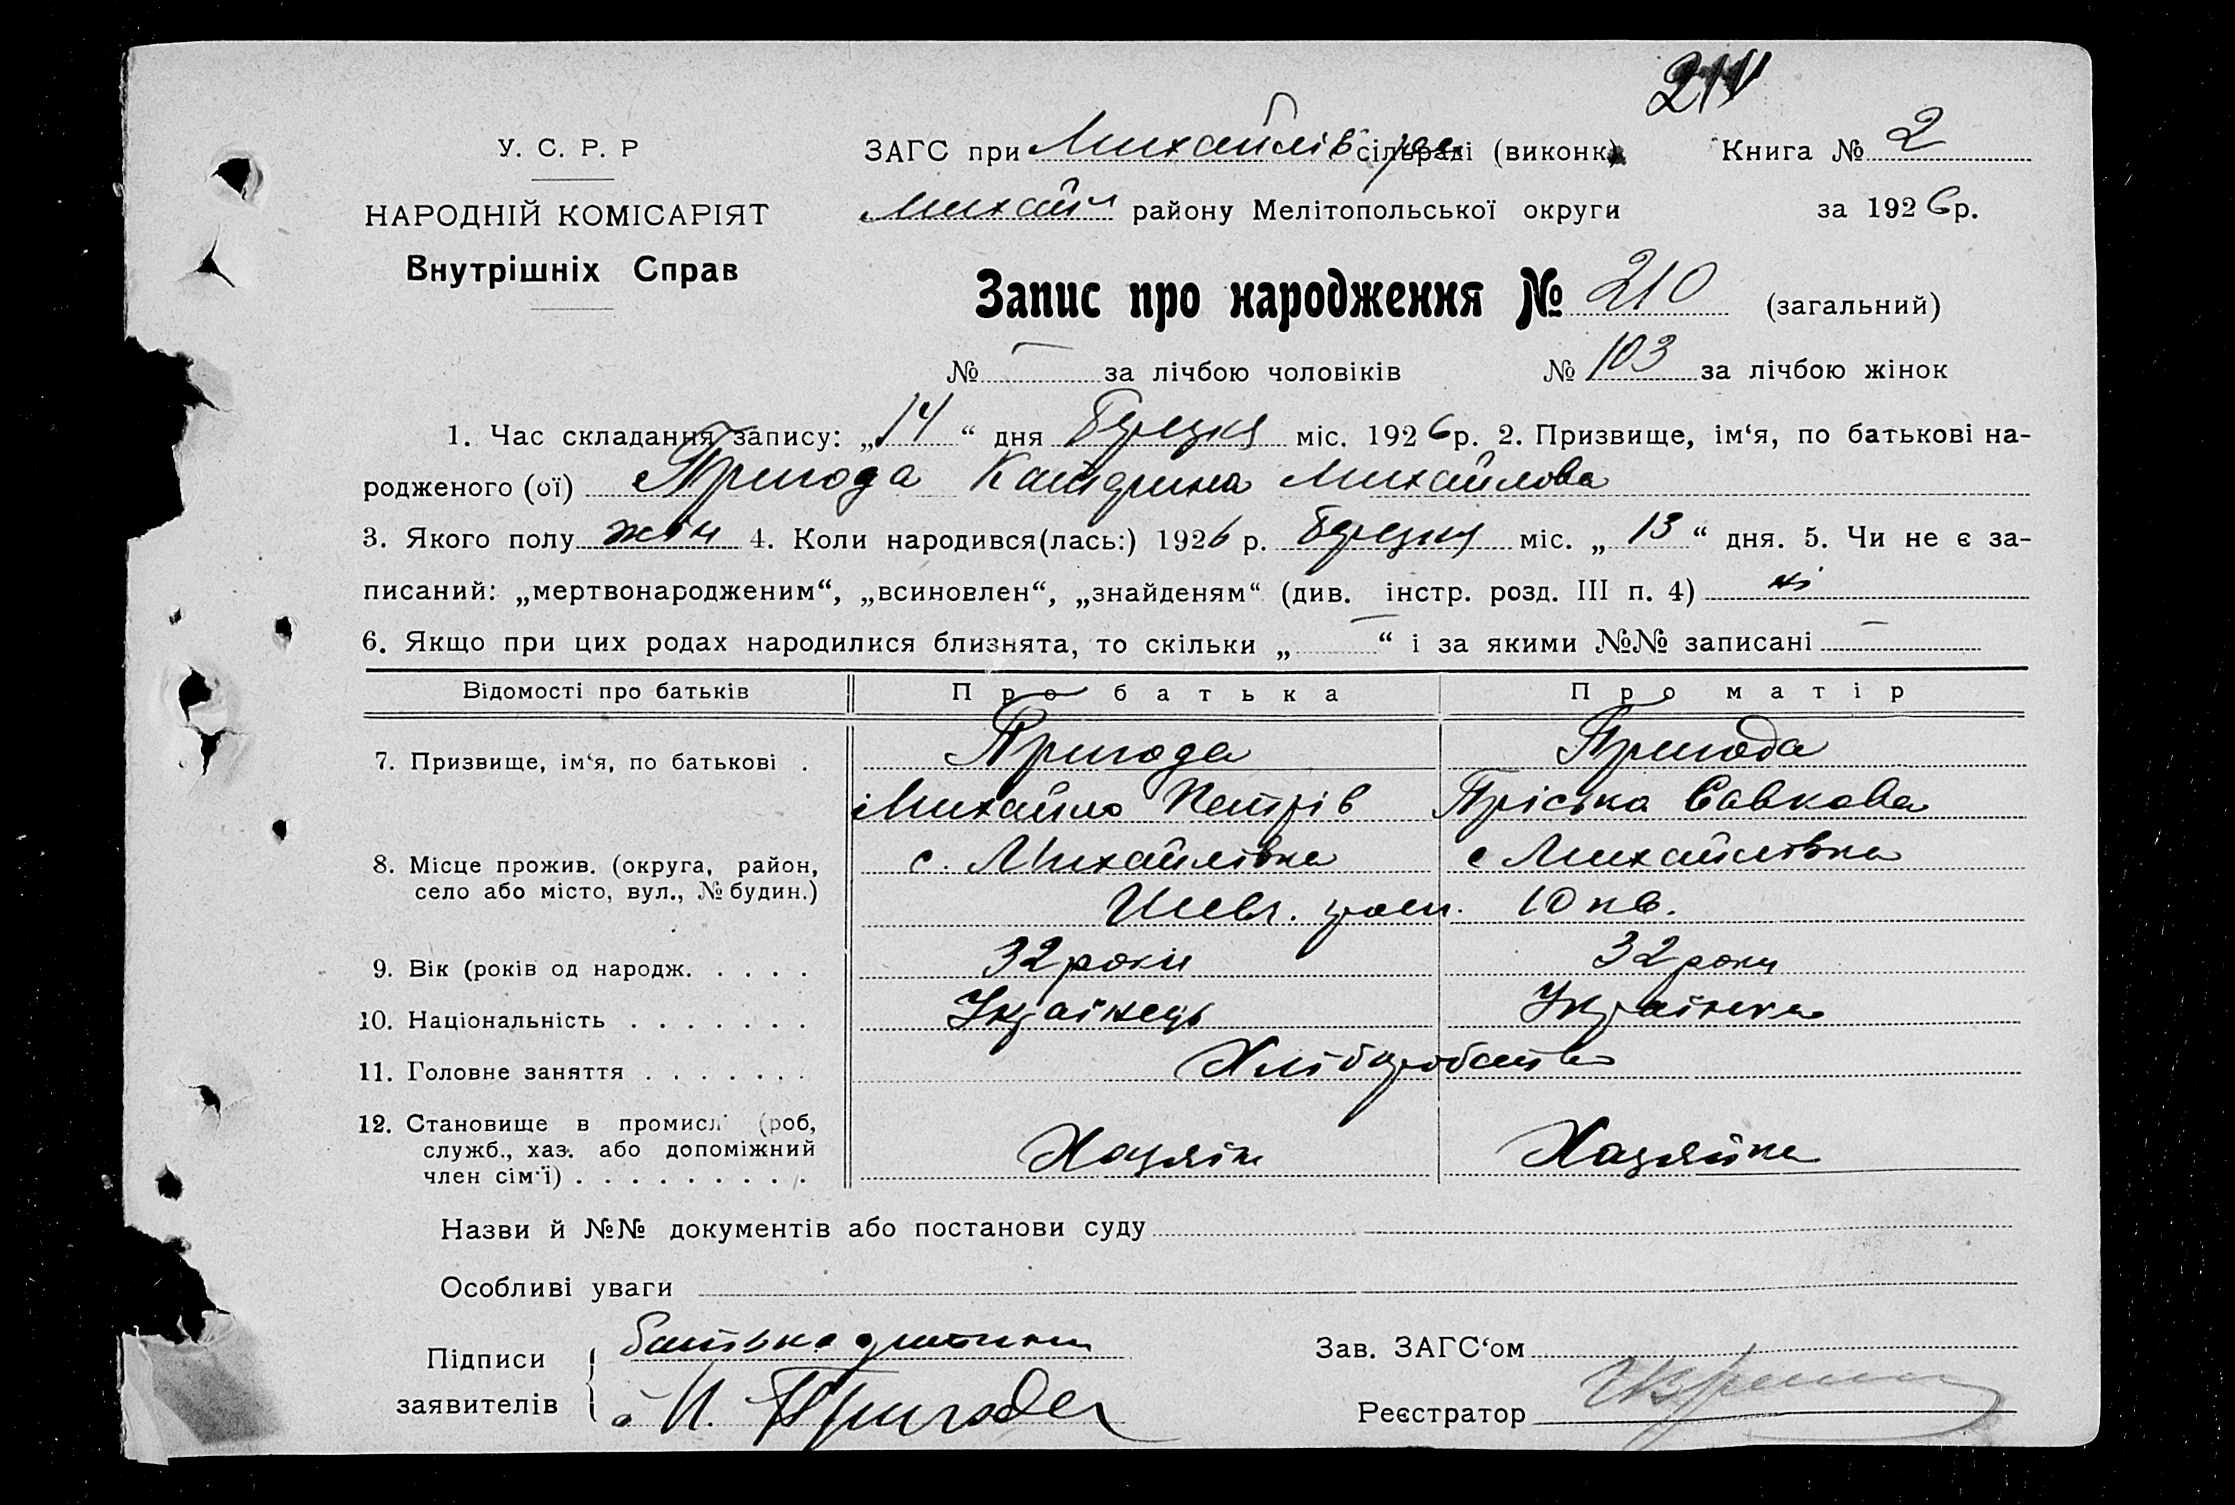 211
У. С. Р. Р
ЗАГС при Михайлів сільраді (виконк)
Книга № 2
НАРОДНІЙ КОМІСАРІЯТ
Михайл району Мелітопольської округи
за 1926 р.
Внутрішніх Справ
Запис про народження № 210 (загальний)
№ — за лічбою чоловіків № 103 за лічбою жінок
1. Час складання запису: „14“ дня Березня міс. 1926 р. 2. Призвище, ім‘я, по батькові на-
родженого (ої) Пригода Катерина Михайлова
3. Якого полу жін 4. Коли народився(лась:) 1926 р. Березня міс. „13“ дня. 5. Чи не є за-
писаний: „мертвонародженим“, „всиновлен“, „знайденям“ (див. інстр. розд. III п. 4) ні
6. Якщо при цих родах народилися близнята, то скільки „ — “ і за якими №№ записані —
Відомості про батьків Про батька Про матір
7. Призвище, ім‘я, по батькові . Пригода Пригода
Михайло Петрів Пріська Савкова
8. Місце прожив. (округа, район, с. Михайлівка с Михайлівка
село або місто, вул., № будин.) 10 кв.
9. Вік (років од народж. . . . . 32 роки 32 роки
10. Національність . . . . . . . Українець Українка
11. Головне заняття . . . . . . . Хліборобство
12. Становище в промислі (роб,
служб., хаз. або допоміжний Хазяїн Хазяйка
член сім‘ї) . . . . . . . . . .
Назви й №№ документів або постанови суду
Особливі уваги
Підписи батько дитини
Зав. ЗАГС‘ом
заявителів М. Пригода
Реєстратор